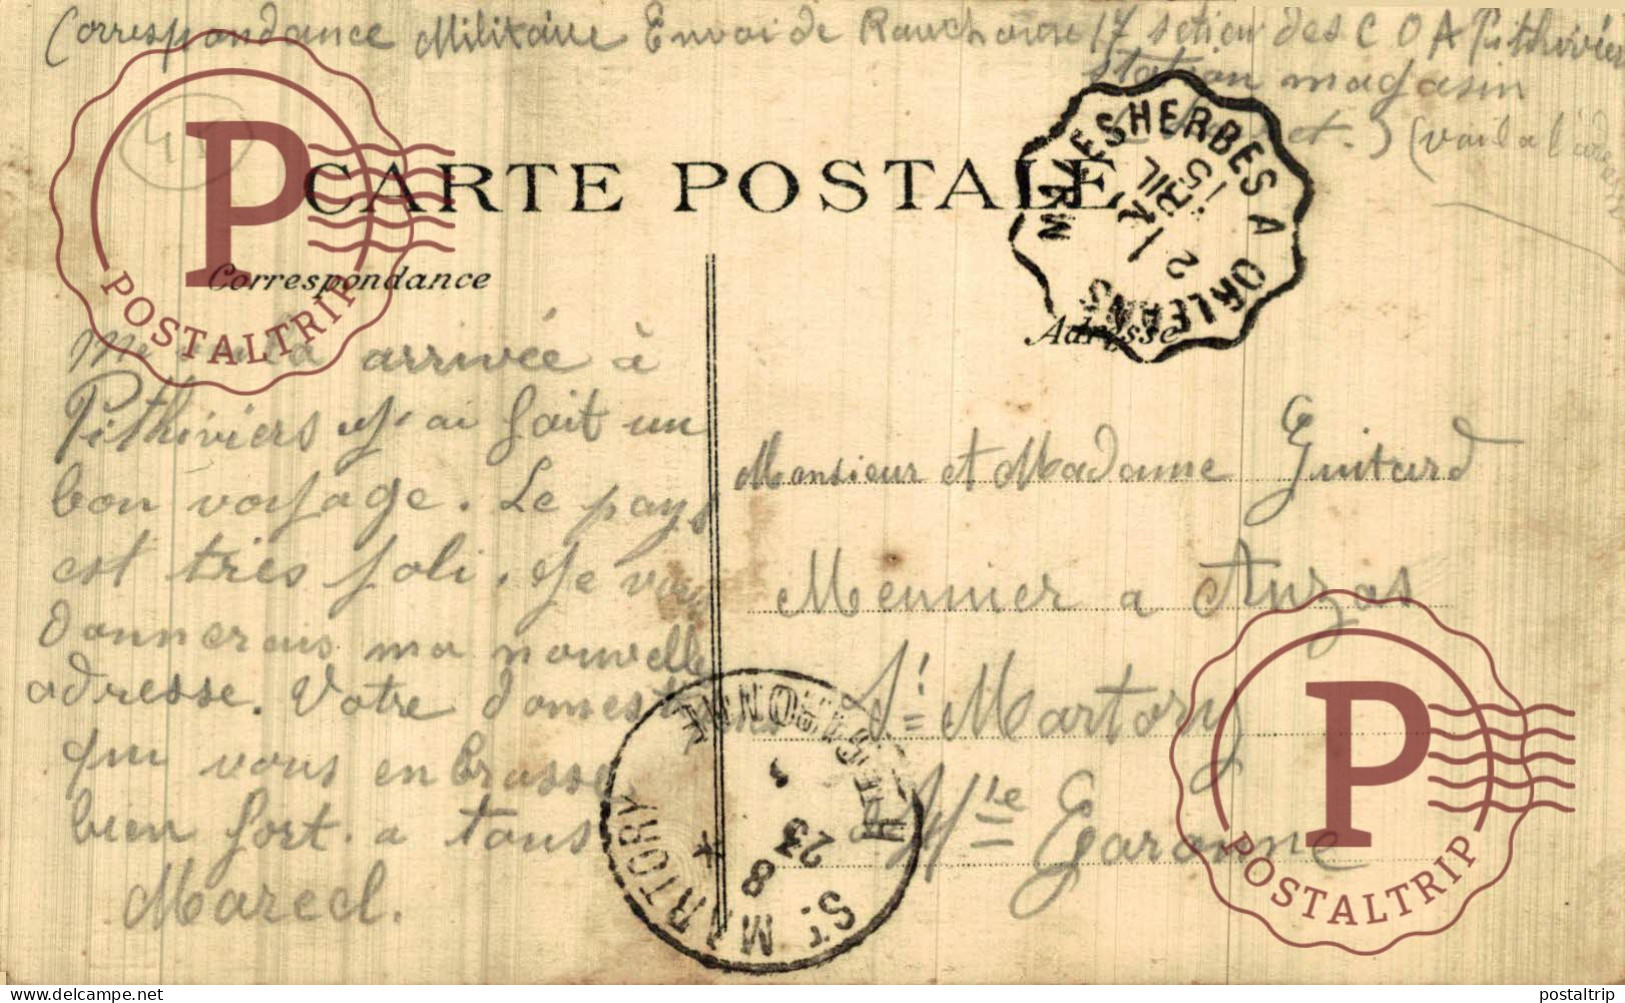 Correspondance Militaire Envoi de 17 section des C O A Pithiviers
Station magasin
(Loiret.) (voila l'adresse
CARTE POSTALE
Correspondance
Adresse
MALESHERBES A ORLEANS
me voila arrivée à
Pithiviers j'ai fait un
bon voyage. Le pays
est très joli. Je vous
donnerais ma nouvelle
adresse. Votre domestique
qui vous enbrasse
bien fort. a tous
Marcel.
Monsieur et Madame Guitard
Meunier a Auzas
St Martory
Hte Garonne
ST MARTORY * HTE GARONNE
8
23
P
POSTALTRIP
P
POSTALTRIP
© postaltrip
www.delcampe.net
postaltrip